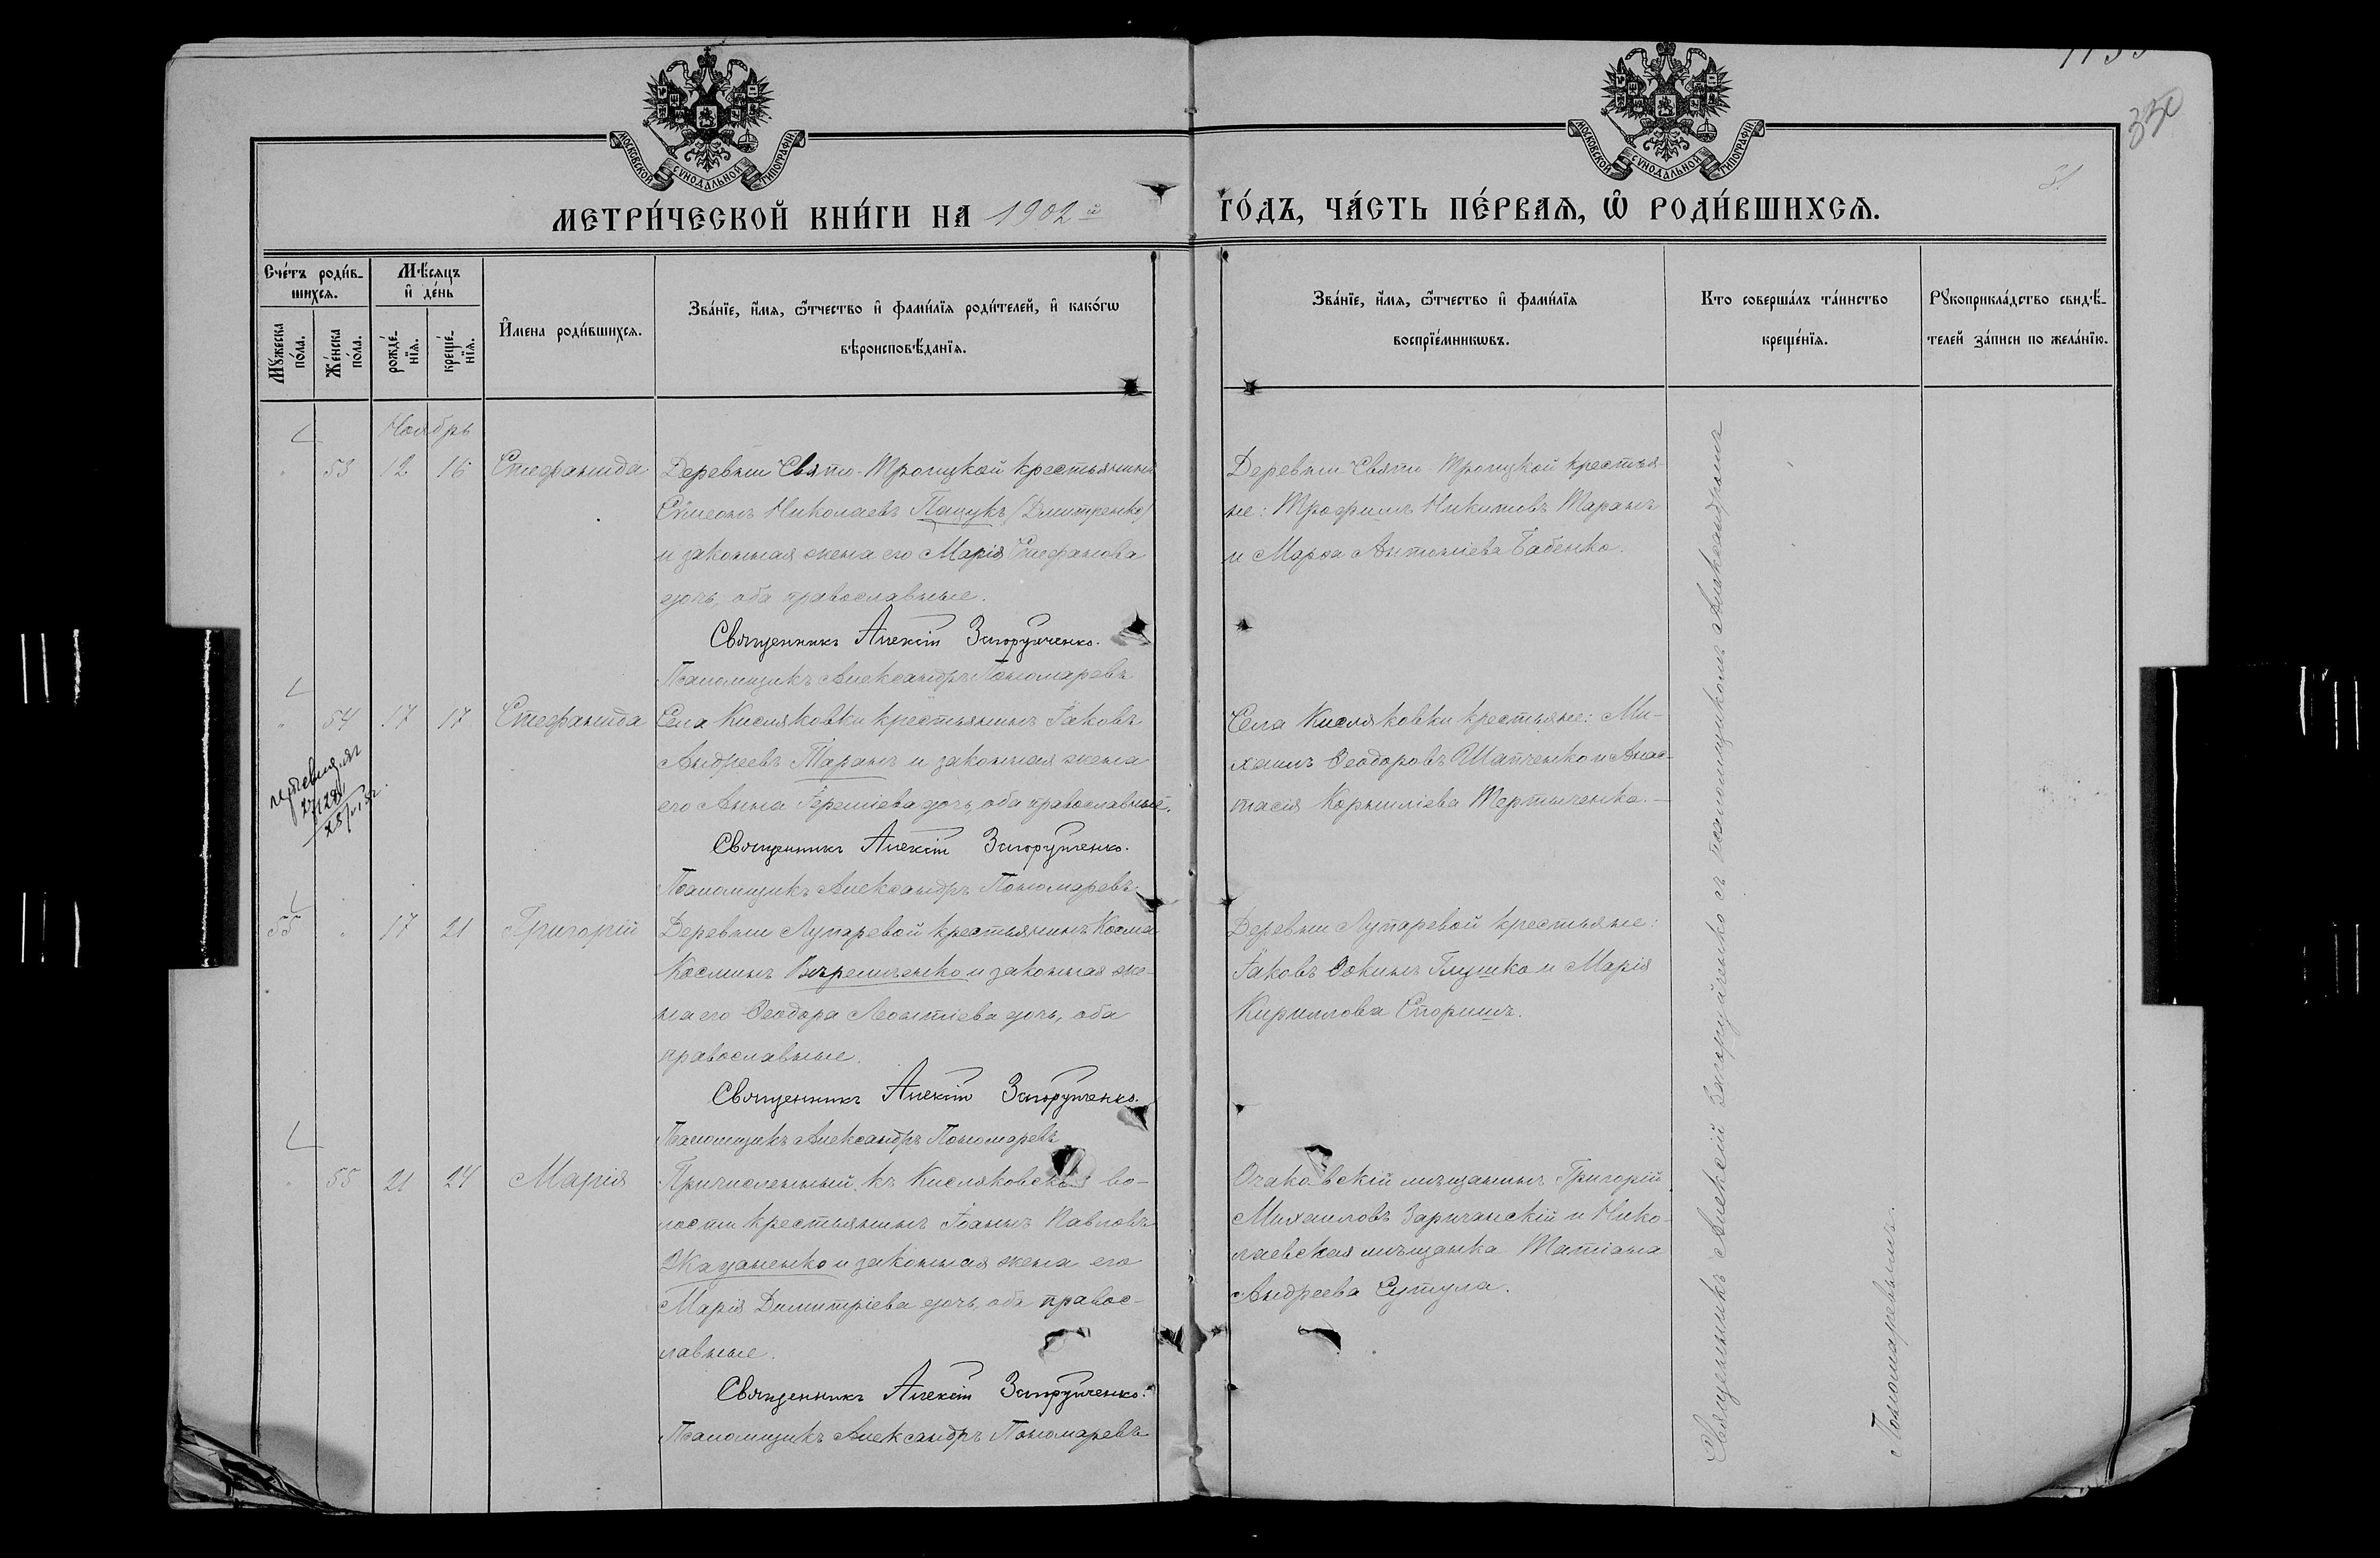 1133
330
31
МОСКОВСКОЙ СѴНОДАЛЬНОЙ ТИПОГРАФІИ
МОСКОВСКОЙ СѴНОДАЛЬНОЙ ТИПОГРАФІИ
МЕТРИ́ЧЕСКОЙ КНИ́ГИ НА 1902 й
ГО́ДЪ, ЧА́СТЬ ПЕ́РВАѦ, Ѽ РОДИ́ВШИХСѦ.
Сче́тъ роди́в-
шихсѧ.
Мѣ́сѧцъ
и҆ де́нь
Мꙋ́жеска
по́ла.
Же́нска
по́ла.
рожде́-
нїѧ.
креще́-
нїѧ.
И҆мена роди́вшихсѧ.
Зва́нїе, и҆́мѧ, ѻ҆́тчество и҆ фами́лїѧ роди́телей, и҆ како́гѡ
вѣроисповѣ́данїѧ.
Зва́нїе, и҆́мѧ, ѻ҆́тчество и҆ фами́лїѧ
воспрїе́мникѡвъ.
Кто соверша́лъ та́инство
креще́нїѧ.
Рꙋкоприкла́дство свидѣ́-
телей за́писи по жела́нїю.
Ноябрь
" 53 12 16 Стефанида
Деревни Свято-Троицкой крестьянинъ
Сѵмеонъ Николаевъ Пащукъ (Дмитренко)
и законная жена его Марія Стефанова
дочь, оба православные.
Священникъ Алексій Загоруйченко.
Псаломщикъ Александръ Пономаревъ
Деревни Свято-Троицкой крестья-
не: Трофимъ Никитовъ Таранъ
и Марѳа Антоніева Бабенко.
" 54 17 17 Стефанида
Села Кисляковки крестьянинъ Іаковъ
Андреевъ Таранъ и законная жена
его Анна Іереміева дочь, оба православные.
Священникъ Алексій Загоруйченко.
Псаломщикъ Александръ Пономаревъ
Села Кисляковки крестьяне: Ми-
хаилъ Ѳеодоровъ Шапченко и Анас-
тасія Корниліева Тертыченко.—
55 " 17 21 Григорій
Деревни Лупаревой крестьянинъ Косма
Косминъ Веремѣенко и законная же-
на его Ѳеодора Леонтіева дочь, оба
православные.
Священникъ Алексій Загоруйченко.
Псаломщикъ Александръ Пономаревъ
Деревни Лупаревой крестьяне:
Іаковъ Ѳокинъ Глушко и Марія
Кириллова Споришъ.
" 55 21 24 Марія
Причисленный къ Кисляковской во-
лости крестьянинъ Іоаннъ Павловъ
Жаданенко и законная жена его
Марія Димитріева дочь, оба правос-
лавные.
Священникъ Алексій Загоруйченко.
Псаломщикъ Александръ Пономаревъ
Очаковскій мѣщанинъ Григорій
Михаиловъ Заричанскій и Нико-
лаевская мѣщанка Татіана
Андреева Сутула.
Священникъ Алексій Загоруйченко съ псаломщикомъ Александромъ
Пономаревымъ.